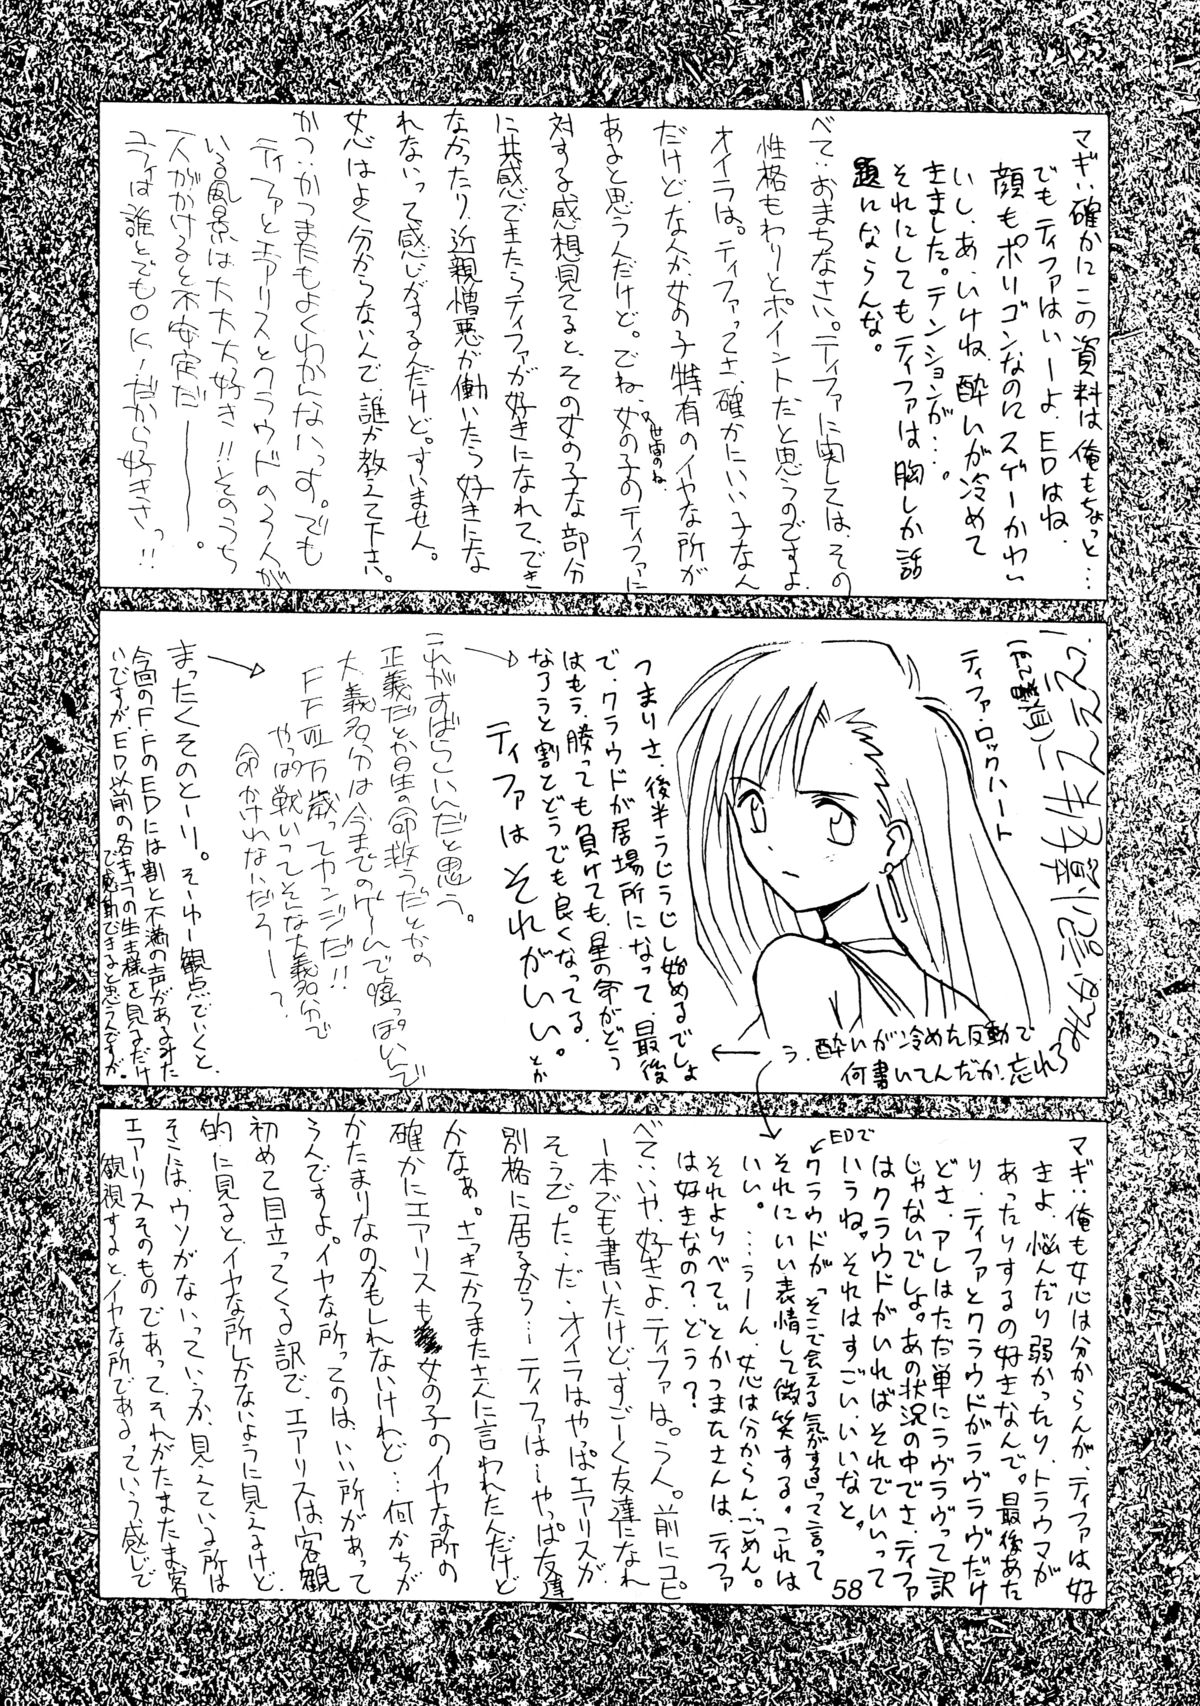 マギ：確かにこの資料は俺もちょっと…
でもティファはいーよ、EDはね、
顔もポリゴンなのにスゲーかわい
いし、あ、いけね、酔いが冷めて
きました。テンションが…。
それにしてもティファは胸しか話
題にならんな。
べて：おまちなさい。ティファに関しては、その
性格もわりとポイントだと思うのですよ
オイラは。ティファってさ、確かにいい子なん
だけど、なんか、女の子特有のイヤな所が
あると思うんだけど。でね、女の子のティファに
世間のね、
対する感想見てると、その女の子な部分
に共感できたらティファが好きになれて、でき
なかったり、近親憎悪が働いたら好きにな
れないって感じがするんだけど。すいません。
女心はよく分からないんで、誰か教えて下さい。
かつ：かつまたもよくわかんないっす。でも
ティファとエアリスとクラウドの3人が
いる風景は大大大好き！！そのうち
一人がかけると不安定だーーー。
ユフィは誰とでもOK！だから好きさっ！！
ティファ・ロックハート
う、酔いが冷めた反動で
何書いてんだか、忘れろ
つまりさ、後半うじうじし始めるでしょ
で、クラウドが居場所になって、最後
はもう、勝っても負けても、星の命がどう
なろうと割とどうでも良くなってる。
ティファはそれがいい。とか
これがすばらしいんだと思う。
正義だとか星の命救うだとかの
大義名分は今までのゲームで嘘っぽいんで
FFⅦ万歳ってカンジだ！！
やっぱ戦いってそんな大義名分で
命かけれないだろー？
まったくそのとーり。そーゆー観点でいくと、
今回のF.FのEDには割と不満の声があるみた
いですが、ED以前の各キャラの生き様を見るだけ
で感動できると思うんですが。
マギ：俺も女心は分からんが、ティファは好
きよ、悩んだり弱かったり、トラウマが
あったりするの好きなんで。最後あた
り、ティファとクラウドがラヴラヴだけ
どさ、アレはただ単にラヴラヴって訳
じゃないでしょ。あの状況の中でさ、ティファ
はクラウドがいればそれでいいって
いうね。それはすごいいいなと。
EDで
クラウドが「そこで会える気がする」って言って
それにいい表情して微笑する。これは
いい。…うーん、女心は分からん、ごめん。
それよりべてぃとかつまたさんは、ティファ
は好きなの？、どう？？
べて：いや、好きよ、ティファは。うん。前にコピ
一本でも書いたけど、すごーく友達になれ
そうで。ただ、オイラはやっぱエアリスが
別格に居るから…ティファは…やっぱ友達
かなぁ。さっきかつまたさんに言われたんだけど
確かにエアリスも女の子のイヤな所の
かたまりなのかもしれないけれど…何かちが
うんですよ。イヤな所ってのは、いい所があって
初めて目立ってくる訳で、エアリスは客観
的に見ると、イヤな所しかないように見えるけど、
そこには、ウソがないっていうか、見えている所は
エアリスそのものであって、それがたまたま客
観視するとイヤな所であるっていう感じで
58